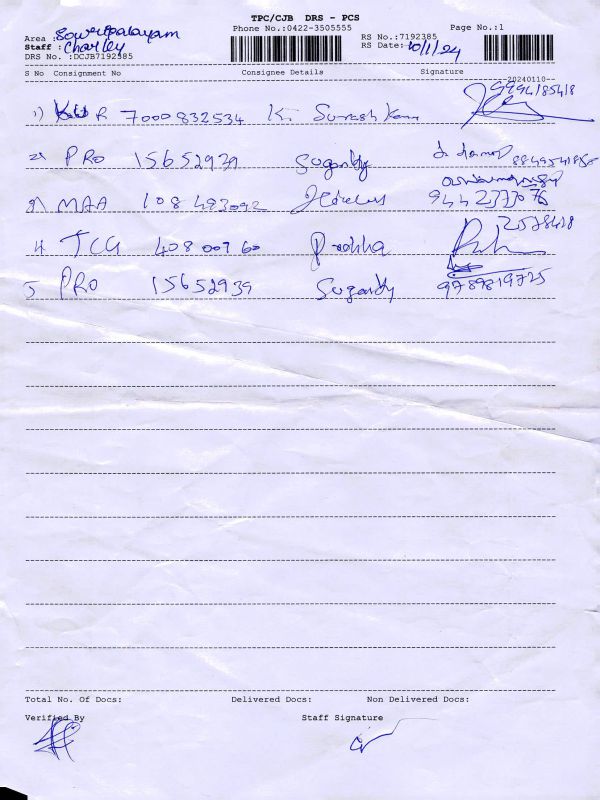 TPC/CJB DRS - PCS
Area : Sowripalayam Phone No.:0422-3505555 Page No.:1
Staff : Charley RS No.:7192385
DRS No. :DCJB7192385 RS Date: 10/1/24
S No Consignment No Consignee Details Signature
20240110
1) R 7000832534 K. Suresh 9994185418
2) PRO Sugandy
3) MAA 108493092 9442373076
4 TCG Prabha 2578418
5 PRO 15652939 Sugandy 9789819725
Total No. Of Docs: Delivered Docs: Non Delivered Docs:
Verified By Staff Signature